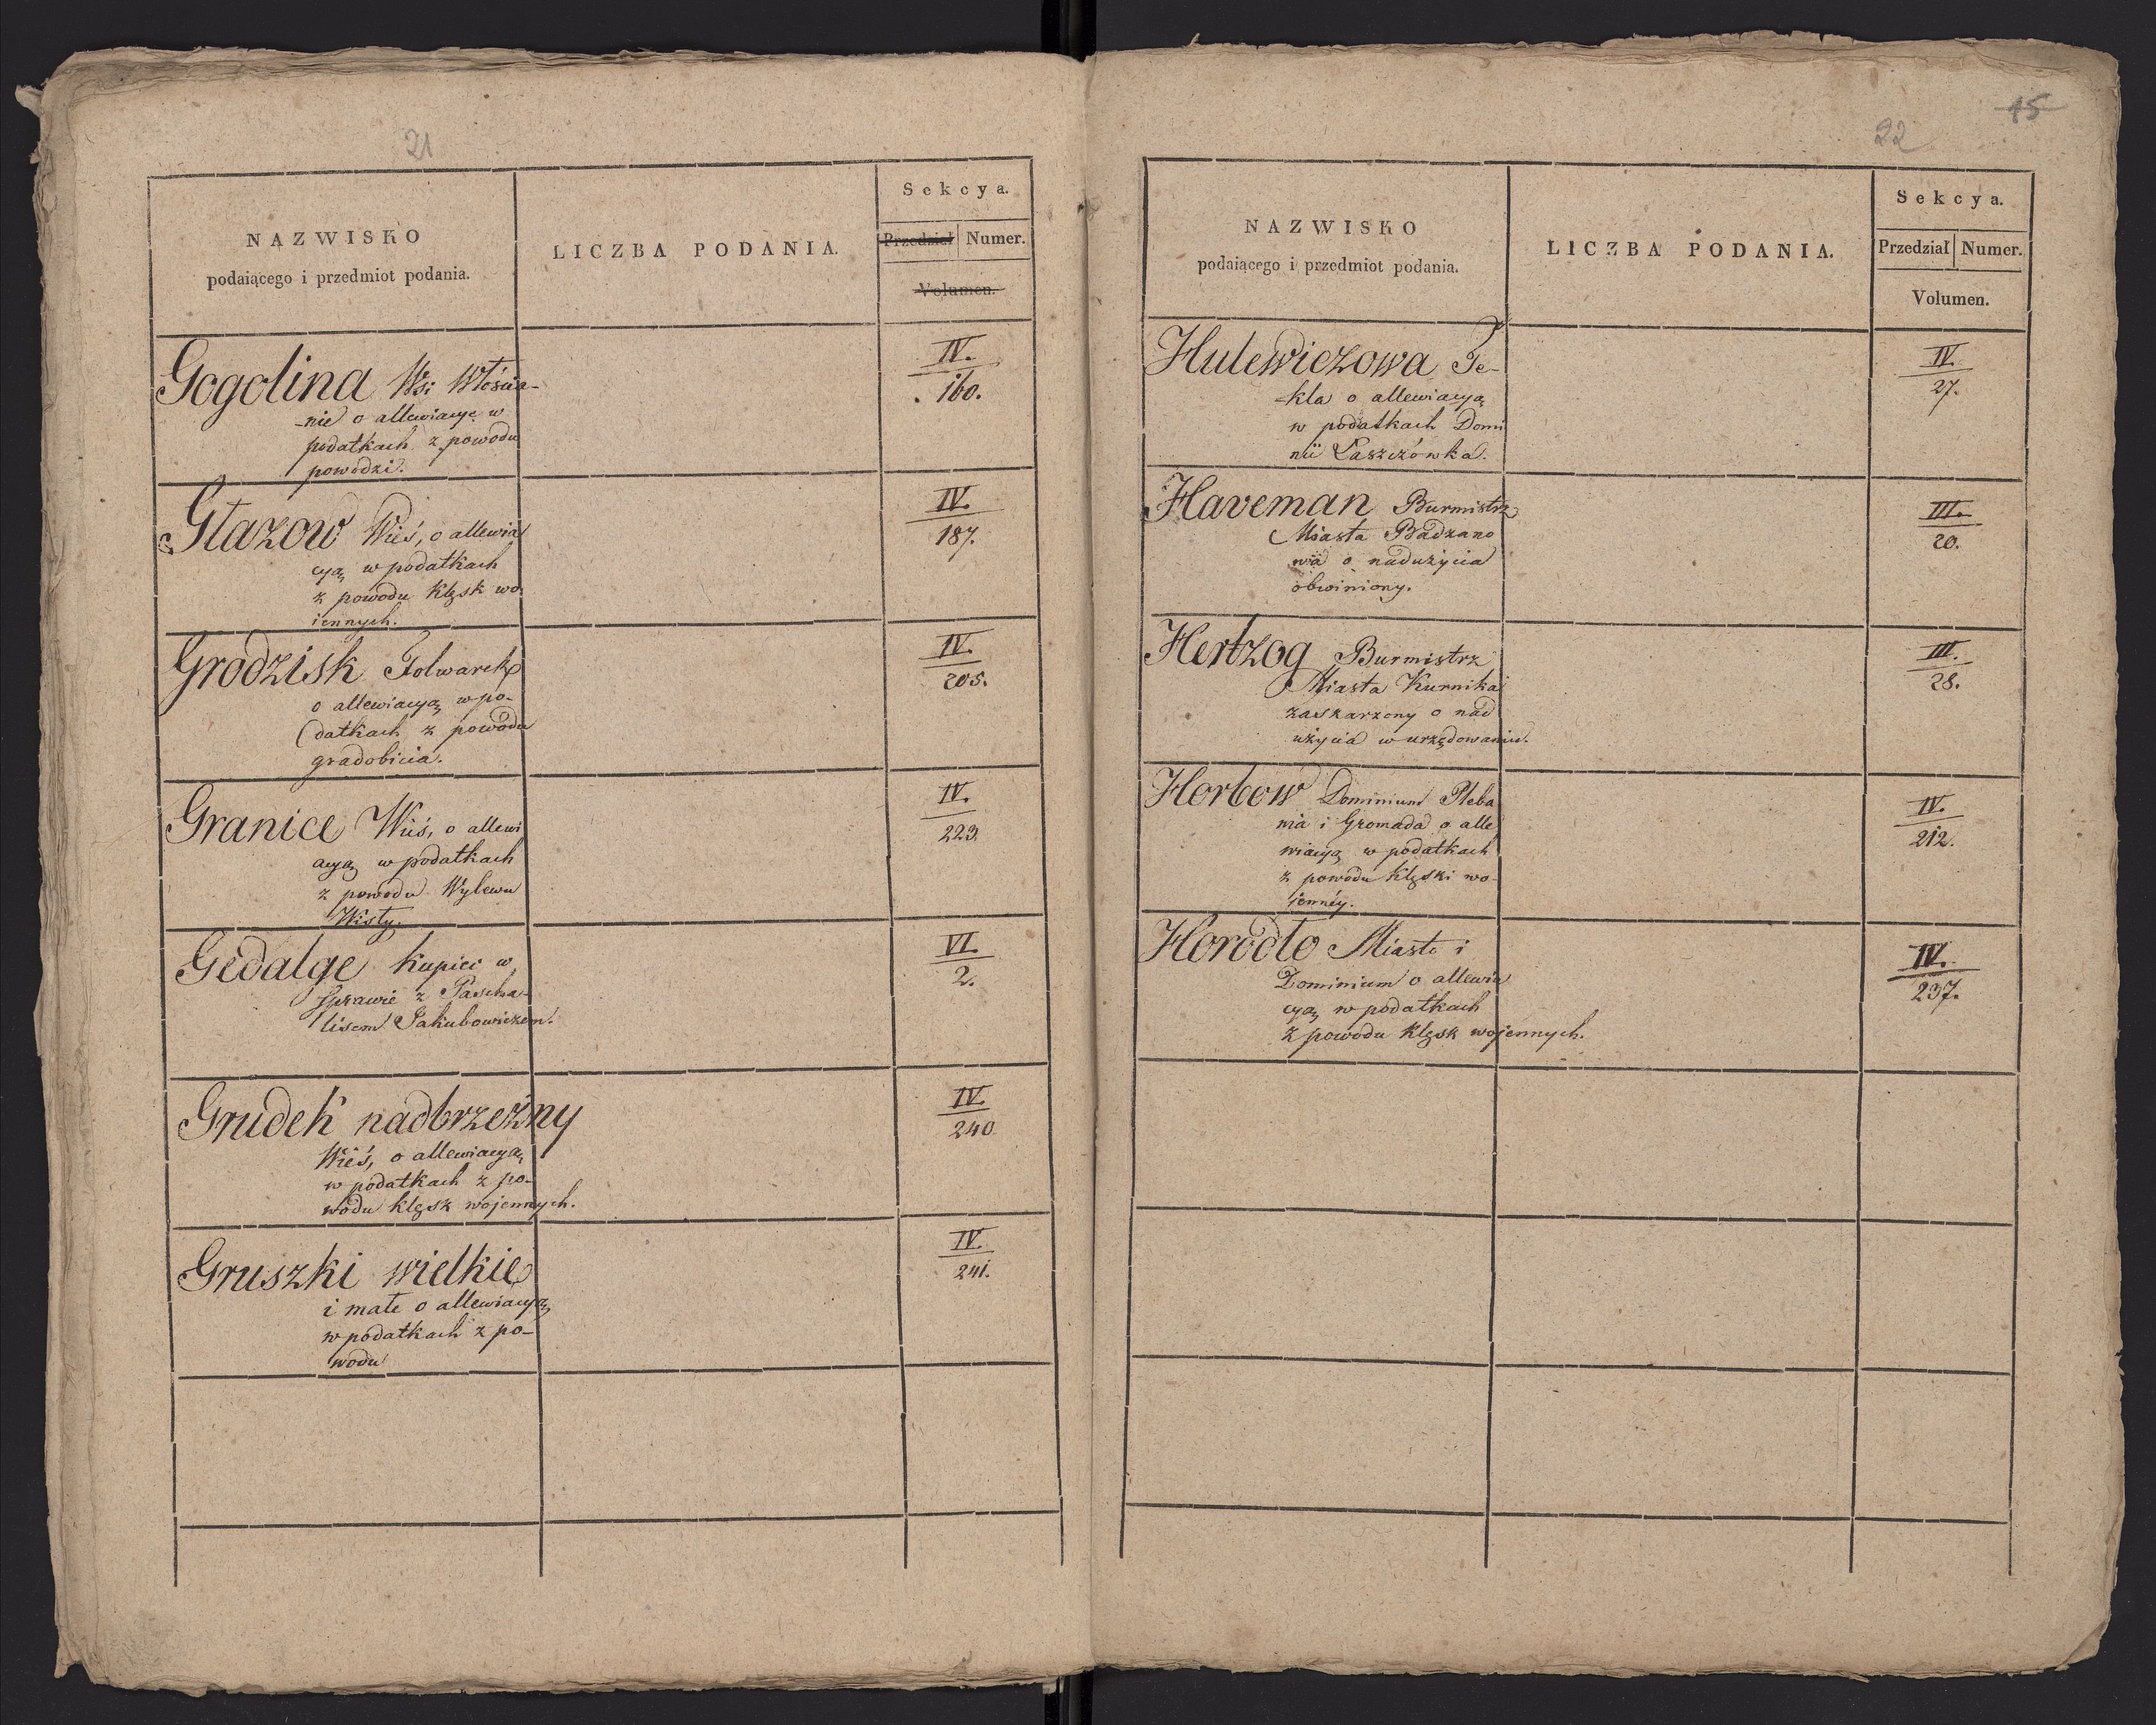 21
NAZWISKO
podaiącego i przedmiot podania.
LICZBA PODANIA.
Sekcya.
Przedział Numer.
Volumen.
Gogolina Wsi Włościa-
nie o allewiacyę w
podatkach z powodu
powodzi.
IV.
160.
Głazow Wieś, o allewia
cyą w podatkach
z powodu klęsk wo
iennych.
IV.
187.
Grodzisk Folwark
o allewiacyą w po-
datkach z powodu
gradobicia.
IV.
205.
Granice Wieś, o allewi
acyą w podatkach
z powodu Wylewu
Wisły.
IV.
223.
Gedalge Kupiec w
Sprawie z Pascha-
lisem Jakubowiczem.
VI.
2.
Grudek nadbrzeżny
Wieś, o allewiacyą
w podatkach z po-
wodu klęsk wojennych.
IV.
240
Gruszki wielkie
i małe o allewiacyą,
w podatkach z po-
wodu
IV.
241.
15
22
NAZWISKO
podaiącego i przedmiot podania.
LICZBA PODANIA.
Sekcya.
Przedział Numer.
Volumen.
Hulewiczowa Te-
kla o allewiacyą
w podatkach Domi
nii Łaszczówka.
IV.
27.
Haveman Burmistrz
Miasta Badzano
wa o nadużycia
obwiniony.
III.
20.
Hertzog Burmistrz
Miasta Kurnika
zaskarzony o nad
użycia w urzędowaniu.
III.
28.
Horbow Dominium Pleba
nia i Gromada o alle
wiacyą w podatkach
z powodu klęski wo-
jennéy.
IV.
212.
Horodło Miasto i
Dominium o allewia
cyą w podatkach
z powodu klęsk wojennych.
IV.
237.